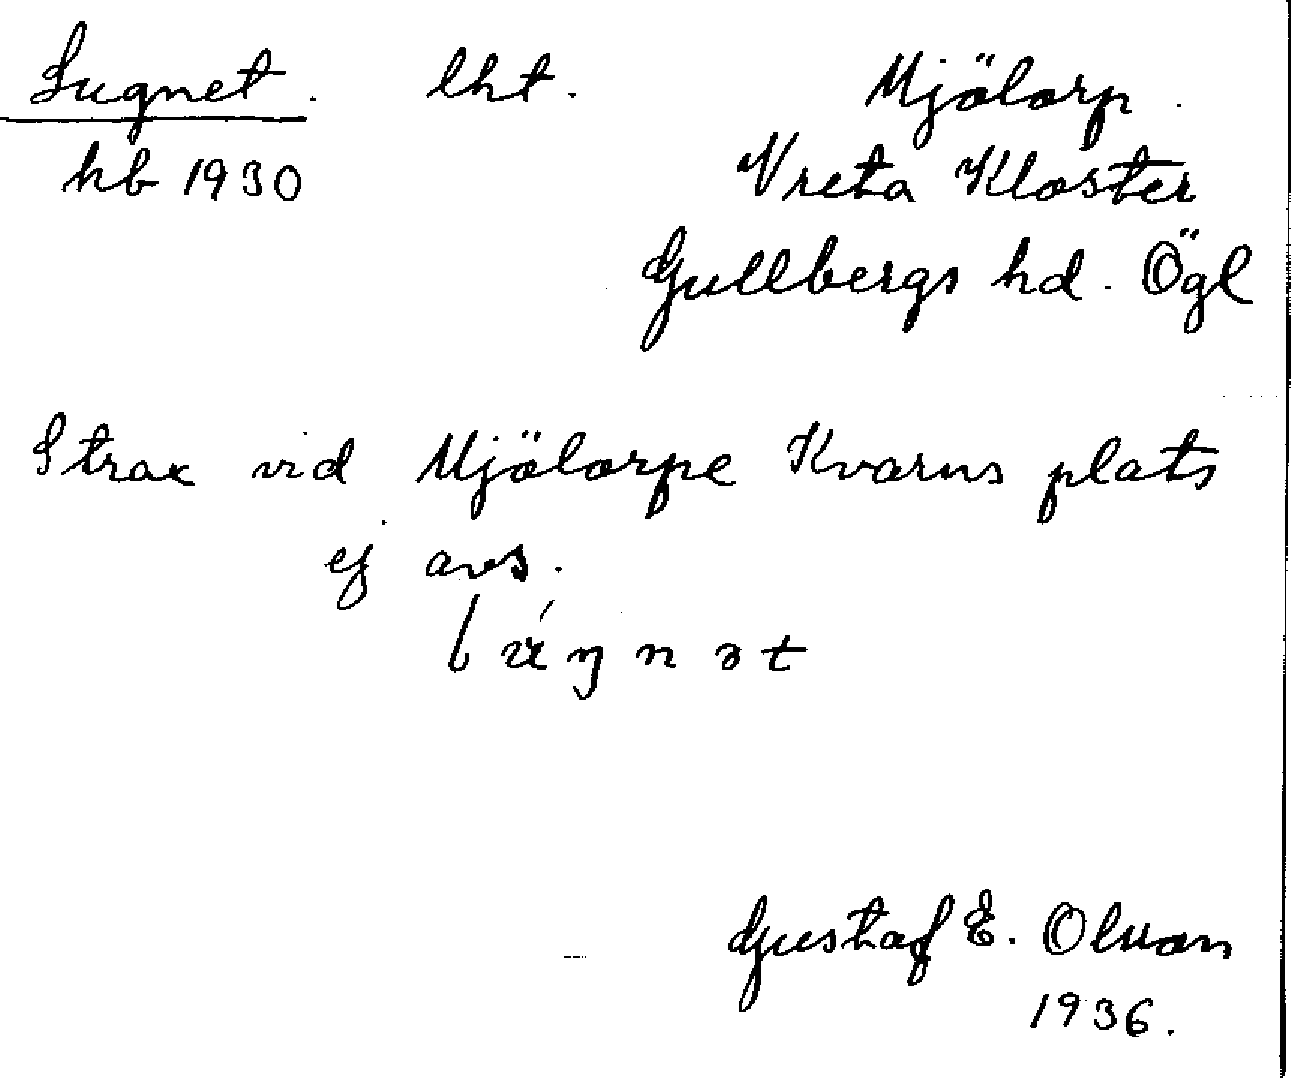 Lugnet. lht. Mjölorp.
hb 1930 Vreta Kloster
Gullbergs hd. Ögl
Strax vid Mjölorpe Kvarns plats
ej avs.
lʉ́ŋnət
Gustaf E. Olsson
1936.